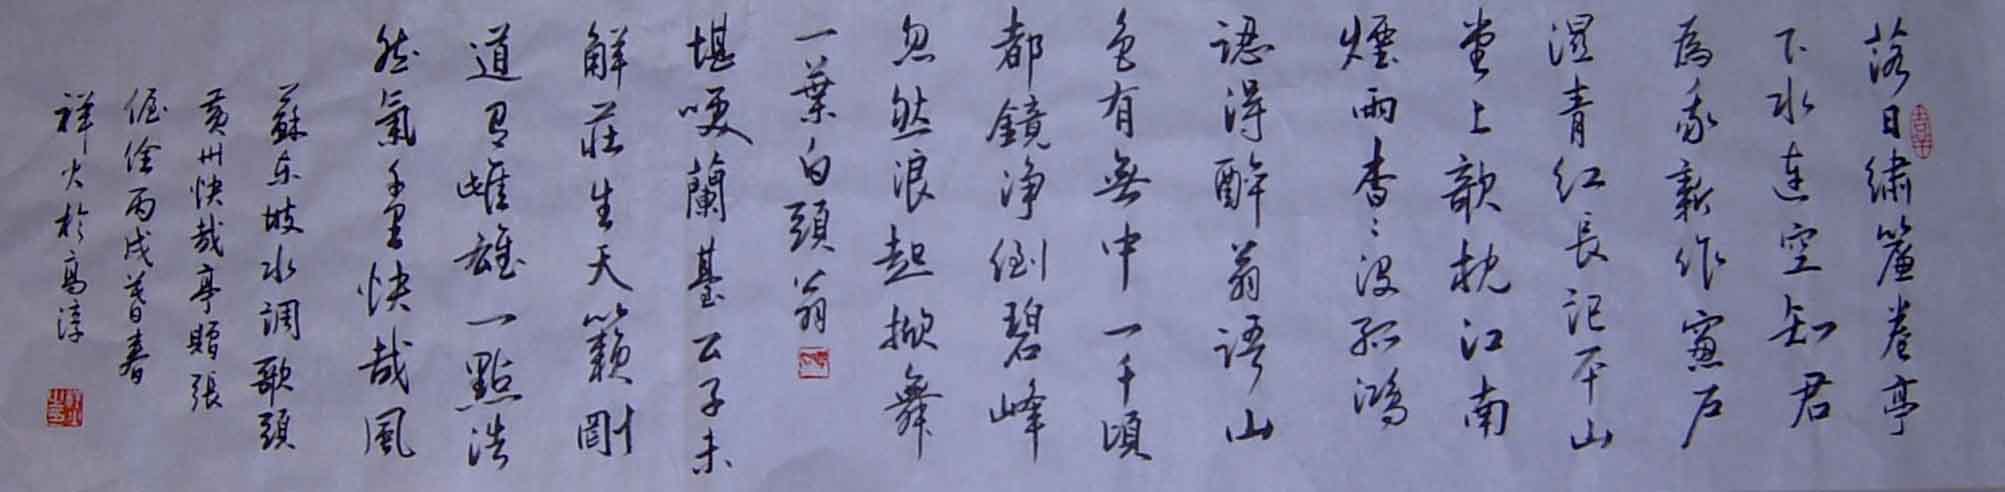 落日繡簾卷亭
下水連空知君
為我新作窻戶
濕青紅長記平山
堂上欹枕江南
煙雨杳〻沒孤鴻
認得醉翁語山
色有無中一千頃
都鏡净倒碧峰
忽然浪起掀舞
一葉白頭翁
堪咲蘭臺公子未
解莊生天籟剛
道有雌雄一點浩
然氣千里快哉風
蘇東坡水調歌頭
黃州快哉亭贈張
偓佺丙戌暮春
祥火於高淳